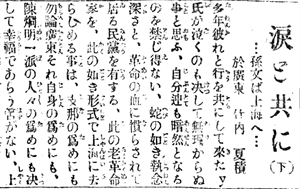 涙と共に
(下)
…孫文ば上海へ…
於廣東 竹内 夏積
多年彼れと行を共にして來たマ
氏が泣くのも決して無理からぬ
事と思ふ、自分達も暗然となる
を禁じ得ない、蛇の如き執念
深さと、革命の血に慣らされて
居る民黨を有する、此の老革命
家を、此の如き形式で上海に去
らひめる事は、支那の爲めにも
勿論廣東それ自身の爲めにも、
陳烱明一派の人々の爲めにも決
して幸福であらう筈がない、上